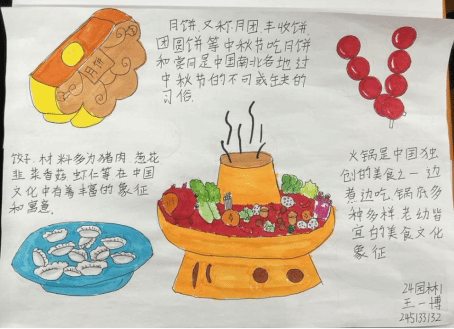 月饼,又称月团、丰收饼
团圆饼等中秋节吃月饼
和赏月是中国南北各地过
中秋节的不可或缺的
习俗.
月饼
饺子.材料多为猪肉.葱花
韭菜香菇.虾仁等在中国
文化中有着丰富的象征
和寓意.
火锅是中国独
创的美食之一.边
煮边吃.锅底多
种多样.老幼皆
宜的美食文化
象征
24园林1
王一博
245133132